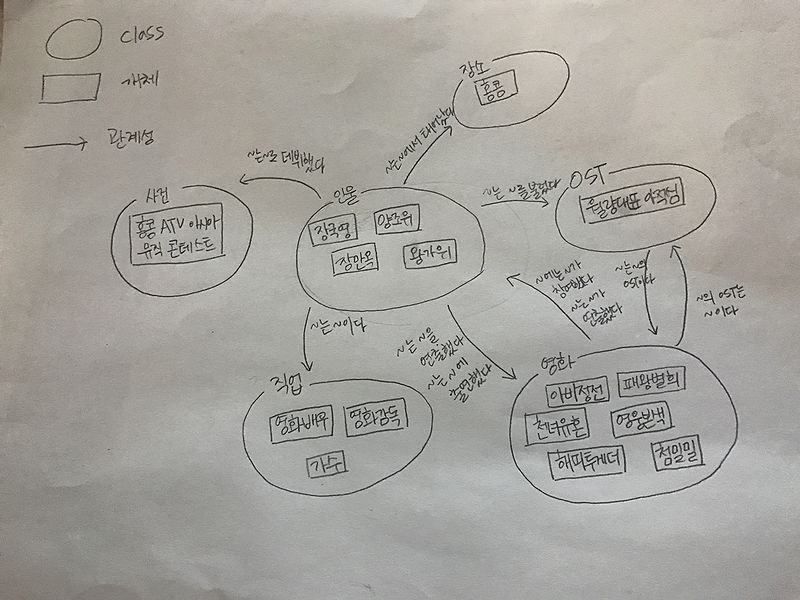 class
개체
관계성
장소
홍콩
~는 ~에서 태어났다
~는 ~로 데뷔했다
사건
홍콩 ATV 아시아
뮤직 콘테스트
인물
장국영
양조위
장만옥
왕가위
~는 ~를 불렀다
OST
월량대표아적심
~에는 ~가
참여했다
~는 ~가
연출했다
~는 ~의
OST이다
~의 OST는
~이다
~는 ~이다
~는 ~을
연출했다
~는 ~에
출연했다
직업
영화배우
영화감독
가수
영화
아비정전
패왕별희
천녀유혼
영웅본색
해피투게더
첨밀밀